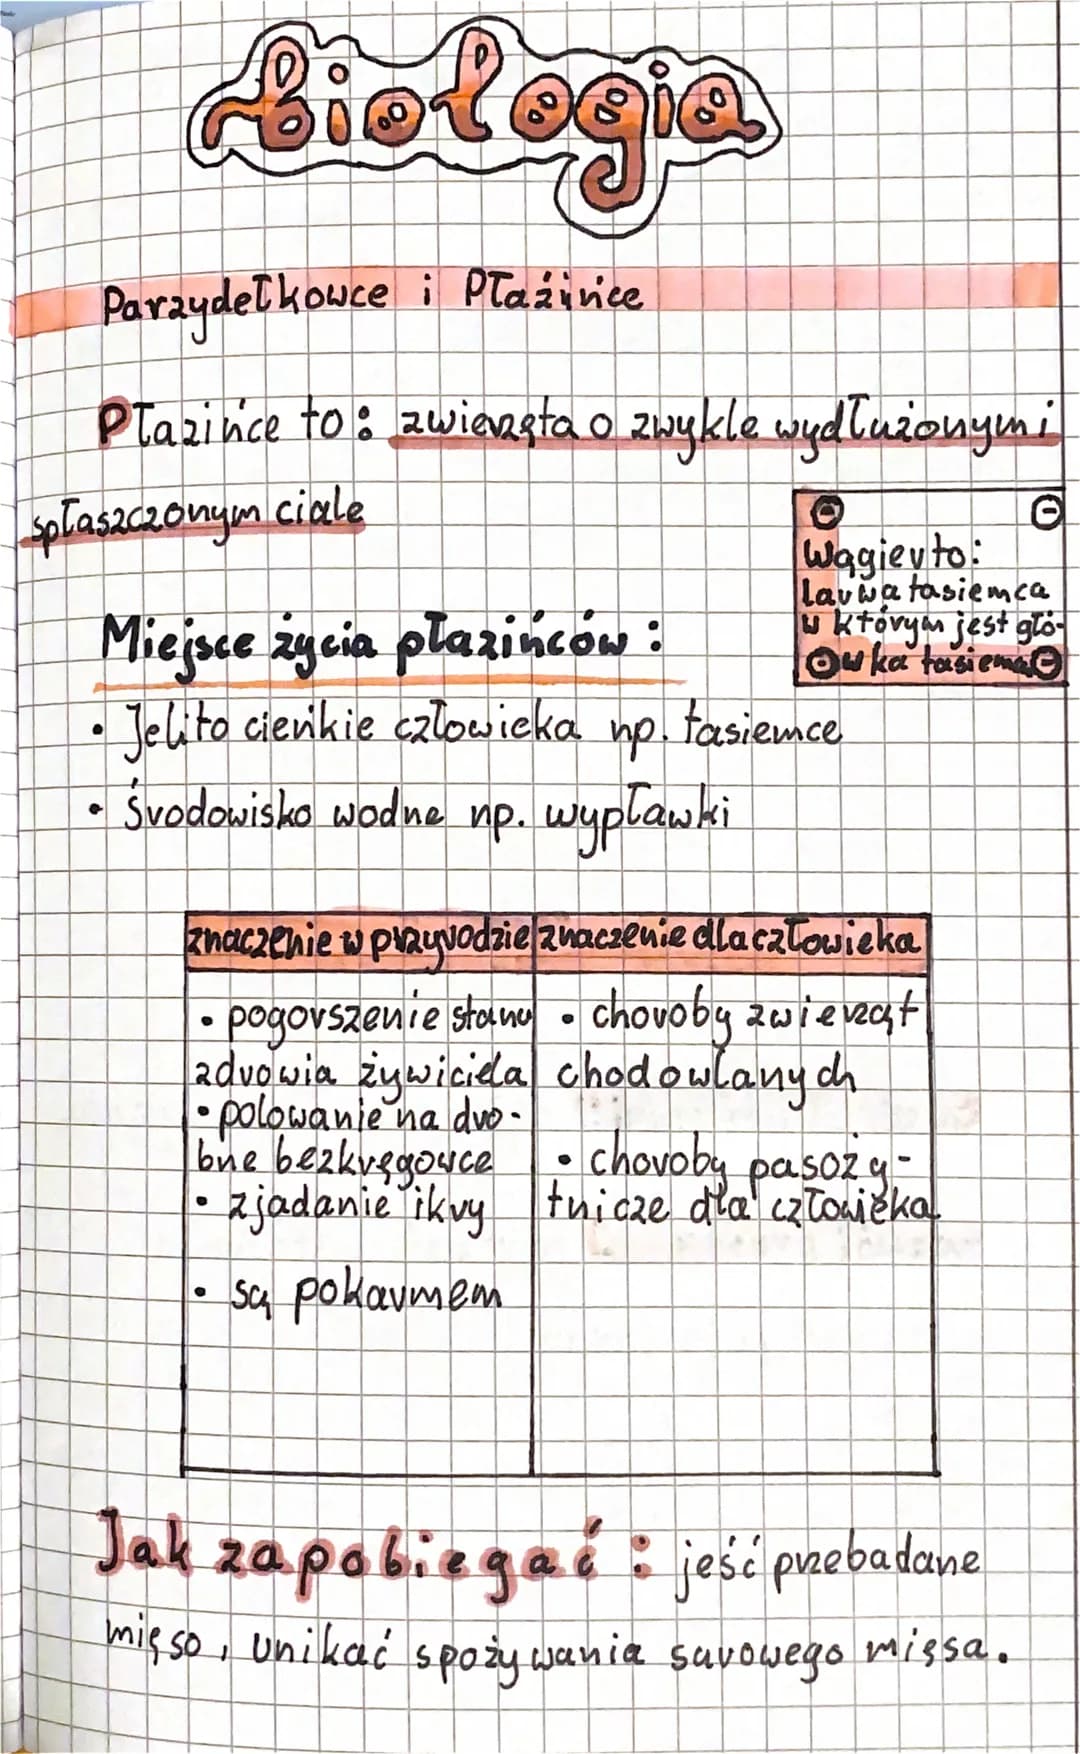 biologia
Parzydełkowce i Płazińce
Płazińce to: zwierzęta o zwykle wydłużonym i
spłaszczonym ciale
Wągier to:
larwa tasiemca
w którym jest głó-
wka tasiemca
Miejsce życia płazińców:
• Jelito cieńkie człowieka np. tasiemce
• środowisko wodne np. wypławki
znaczenie w przyrodzie znaczenie dla człowieka
• pogorszenie stanu
zdrowia żywiciela
• polowanie na dro-
bne bezkręgowce
• zjadanie ikry
• są pokarmem
• choroby zwierząt
chodowlanych
• choroby pasoży-
tnicze dla człowieka
Jak zapobiegać: jeść przebadane
mięso, unikać spożywania surowego mięsa.